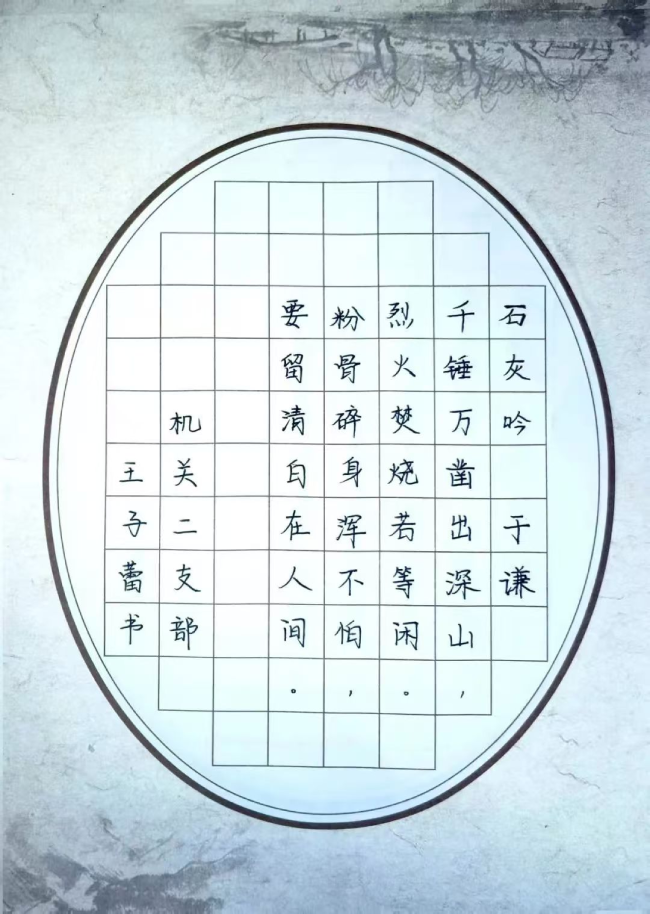 石灰吟 于谦
千锤万凿出深山，
烈火焚烧若等闲。
粉骨碎身浑不怕，
要留清白在人间。
机关二支部
王子蕾书